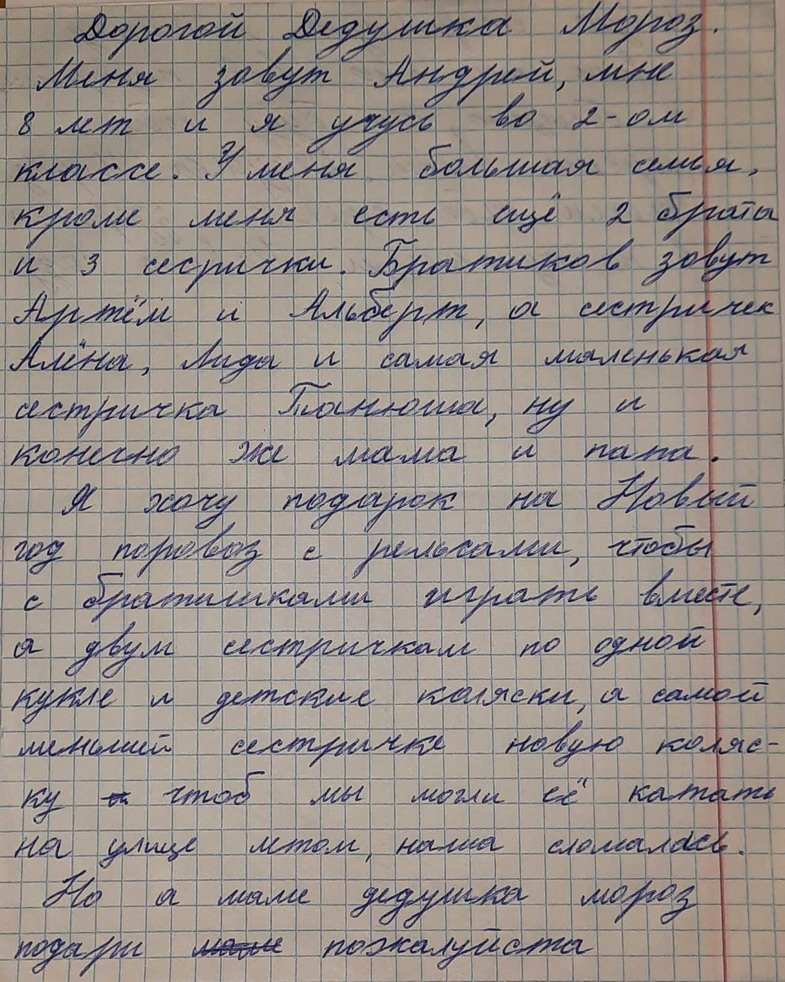 Дорогой Дедушка Мороз.
Меня зовут Андрей, мне
8 лет и я учусь во 2-ом
классе. У меня большая семья,
кроме меня есть ещё 2 брата
и 3 сесрички. Братиков зовут
Артём и Альберт, а сестричек
Алёна, Лида и самая маленькая
сестричка Танюша, ну и
конечно же мама и папа.
Я хочу подарок на Новый
год поровоз с рельсами, чтобы
с братишками играть вместе,
а двум сестричкам по одной
кукле и детские коляски, а самой
меньшей сестричке новую коляс-
ку чтоб мы могли её катать
на улице летом, наша сломалась.
Но а маме дедушка мороз
подари маме пожалуйста